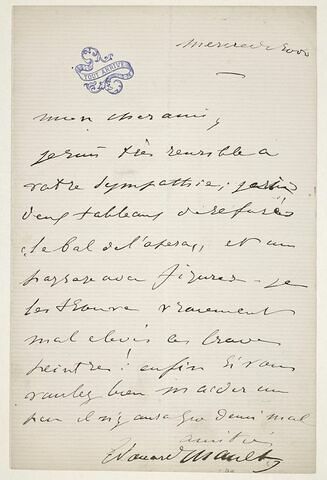 TOUT ARRIVE
mercredi soir
mon cher ami,
je suis très sensible à
votre sympathie; j'ai
deux tableaux de refusés
le bal de l'opera, et un
paysage avec figures - je
les trouve vraiment
mal elevés ces braves
peintres! enfin si vous
voulez bien m'aider un
peu il n'y aura que demi mal
amitiés
Edouard Manet